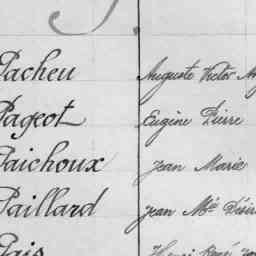 Pacheu Auguste Victor
Pageot Eugène Pierre
Paichoux Jean Marie
Paillard Jean Mie Désiré
Pais Henri René